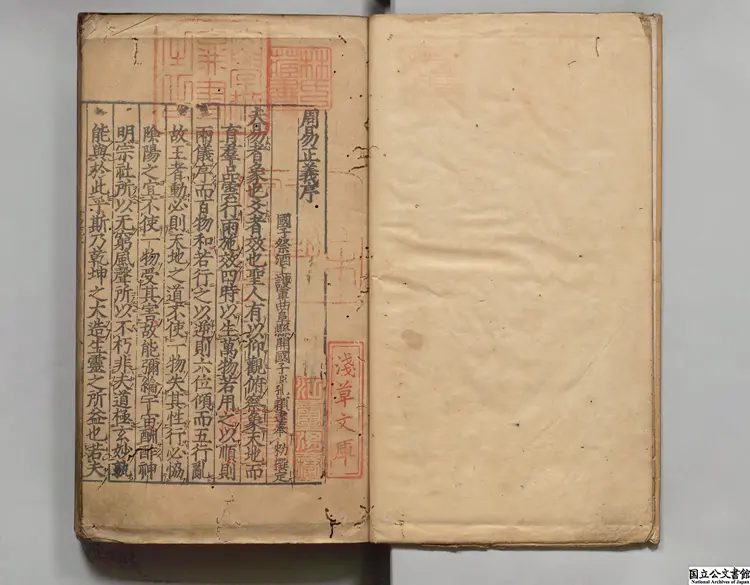 周易正義序
國子祭酒上護軍曲阜縣開國子臣孔穎達奉 勑撰定
夫易者象也爻者效也聖人有以仰觀俯察象天地而
育羣品雲行雨施效四時以生萬物若用之以順則
兩儀序而百物和若行之以逆則六位傾而五行亂
故王者動必則天地之道不使一物失其性行必恊
陰陽之宜不使一物受其害故能彌綸宇宙酬酢神
明宗社所以无窮風聲所以不朽非夫道極玄妙孰
能與於此乎斯乃乾坤之大造生靈之所益也若夫
淺草文庫
林氏藏書
国立公文書館
National Archives of Japan